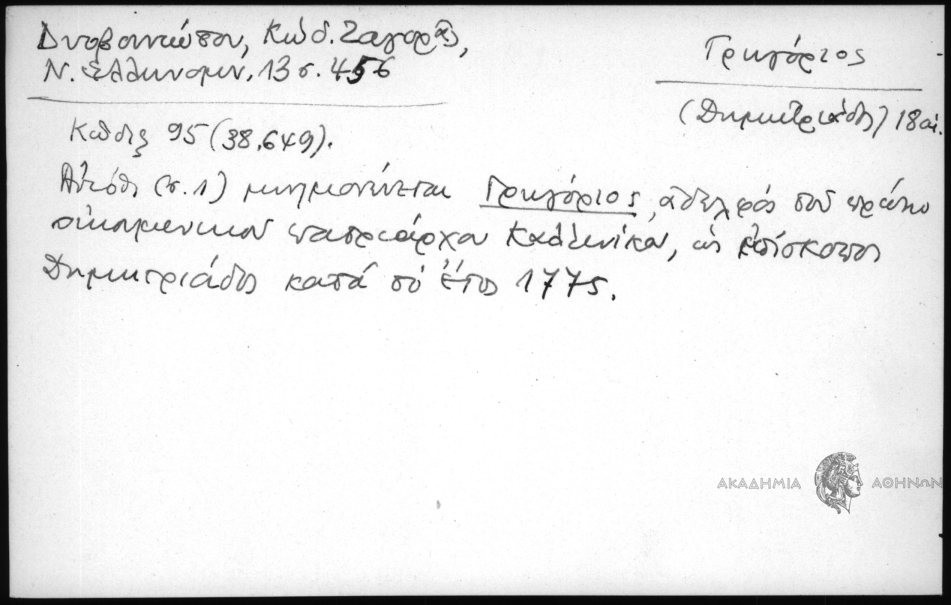 Δυοβουνιώτου, Κώδ. Ζαγορᾶς,
Ν. Ἑλληνομν. 13 σ. 456
Γρηγόριος
(Δημητριάδος) 18 αἰ.
Κῶδιξ 95 (38,649).
Αὐτόθι (σ. 1) μνημονεύεται Γρηγόριος, ἀδελφός τοῦ πρώην
οἰκουμενικοῦ πατριάρχου Καλλινίκου, ὡς ἐπίσκοπος
Δημητριάδος κατά τό ἔτος 1775.
ΑΚΑΔΗΜΙΑ ΑΘΗΝΩΝ